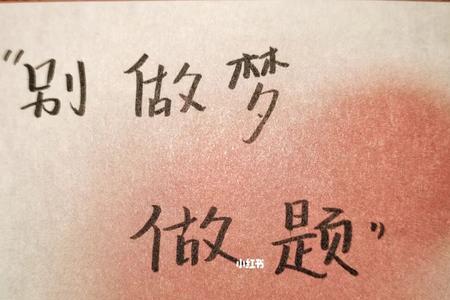 "别做梦
做题"
小红书